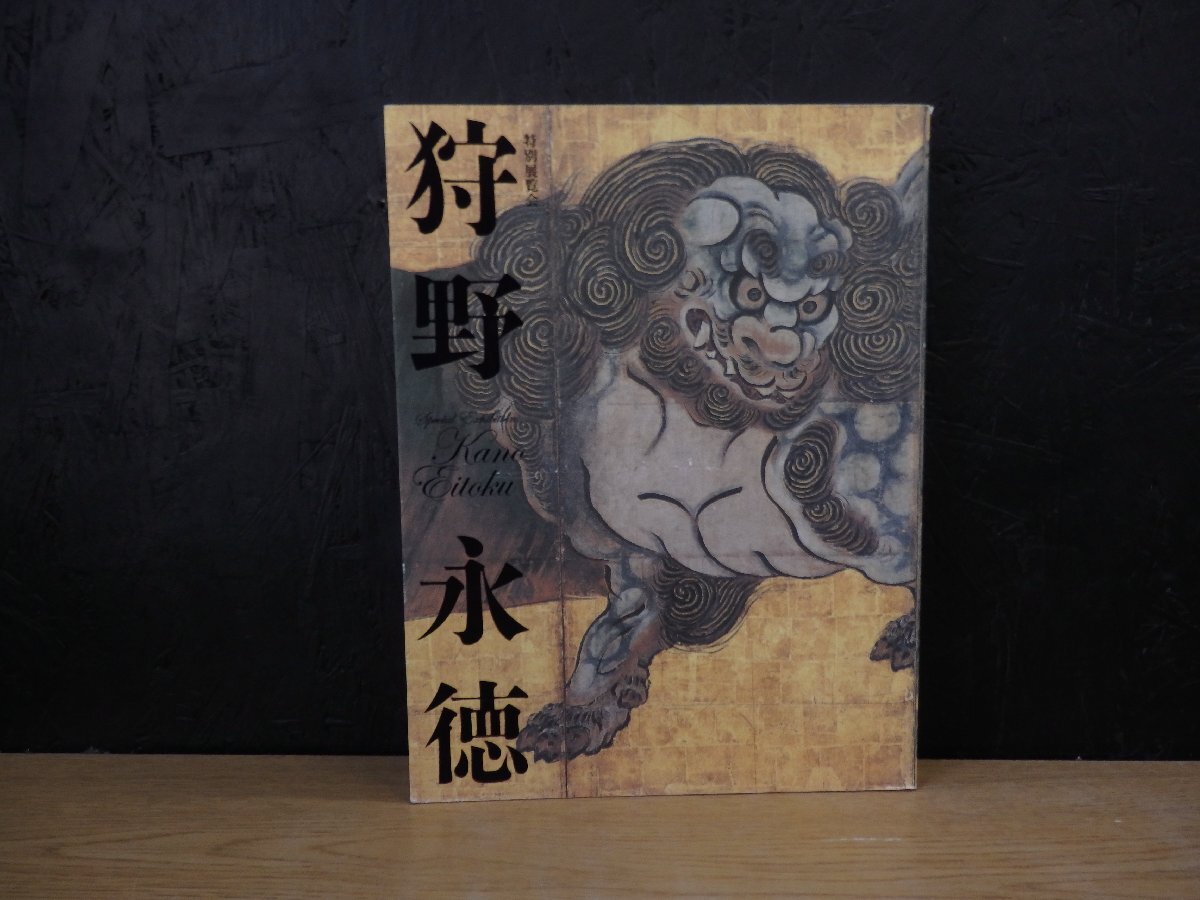 特別展覧会
狩野永徳
Special Exhibition
Kano
Eitoku